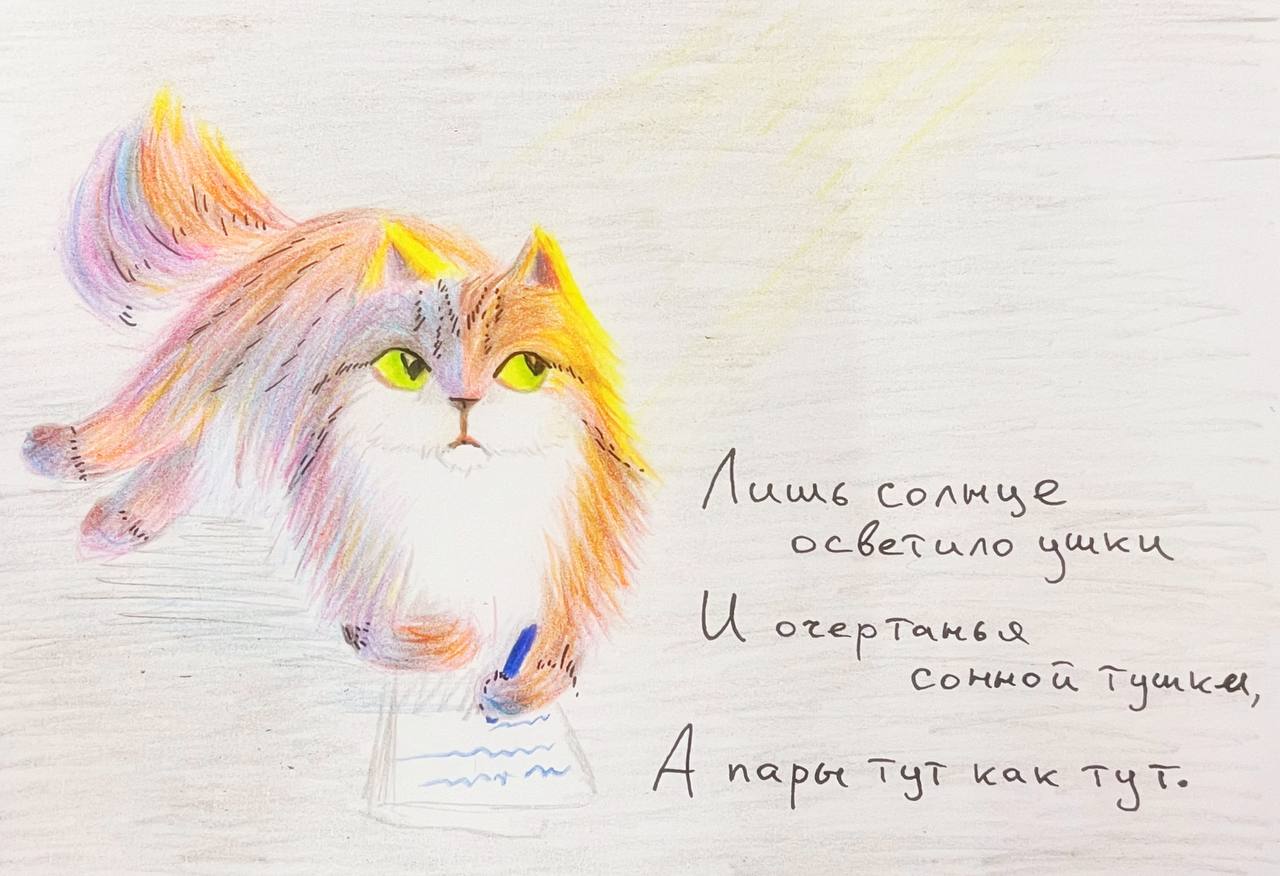 Лишь солнце
осветило ушки
И очертанья
сонной тушки,
А пары тут как тут.